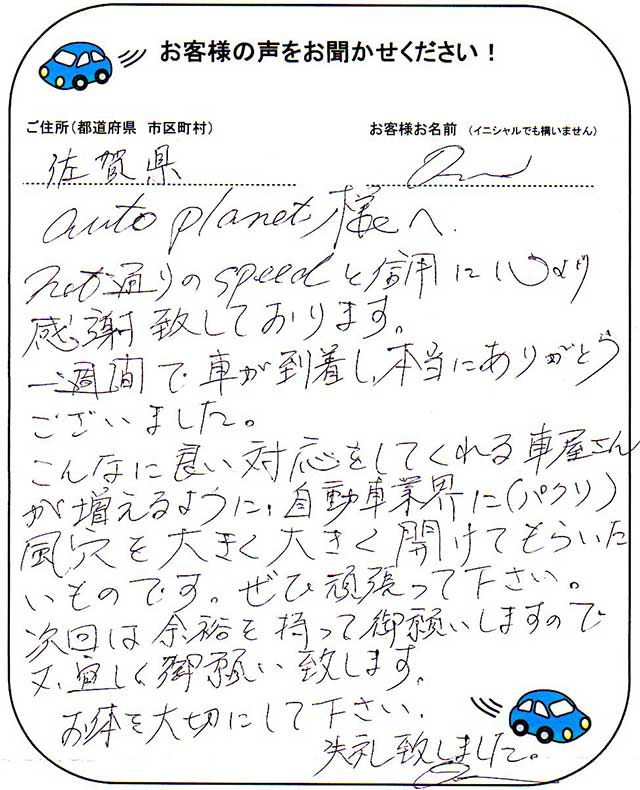 お客様の声をお聞かせください！
ご住所（都道府県　市区町村）
お客様お名前　（イニシャルでも構いません）
佐賀県
auto planet 様へ.
通りのspeedと信用に心より
感謝致しております。
一週間で車が到着し、本当にありがとう
ございました。
こんなに良い対応をしてくれる車屋さん
が増えるように、自動車業界に（パクリ）
風穴を大きく大きく開けてもらいた
いものです。ぜひ頑張って下さい。
次回は余裕を持って御願いしますので
又、宜しく御願い致します。
お体を大切にして下さい.
失礼致しました。